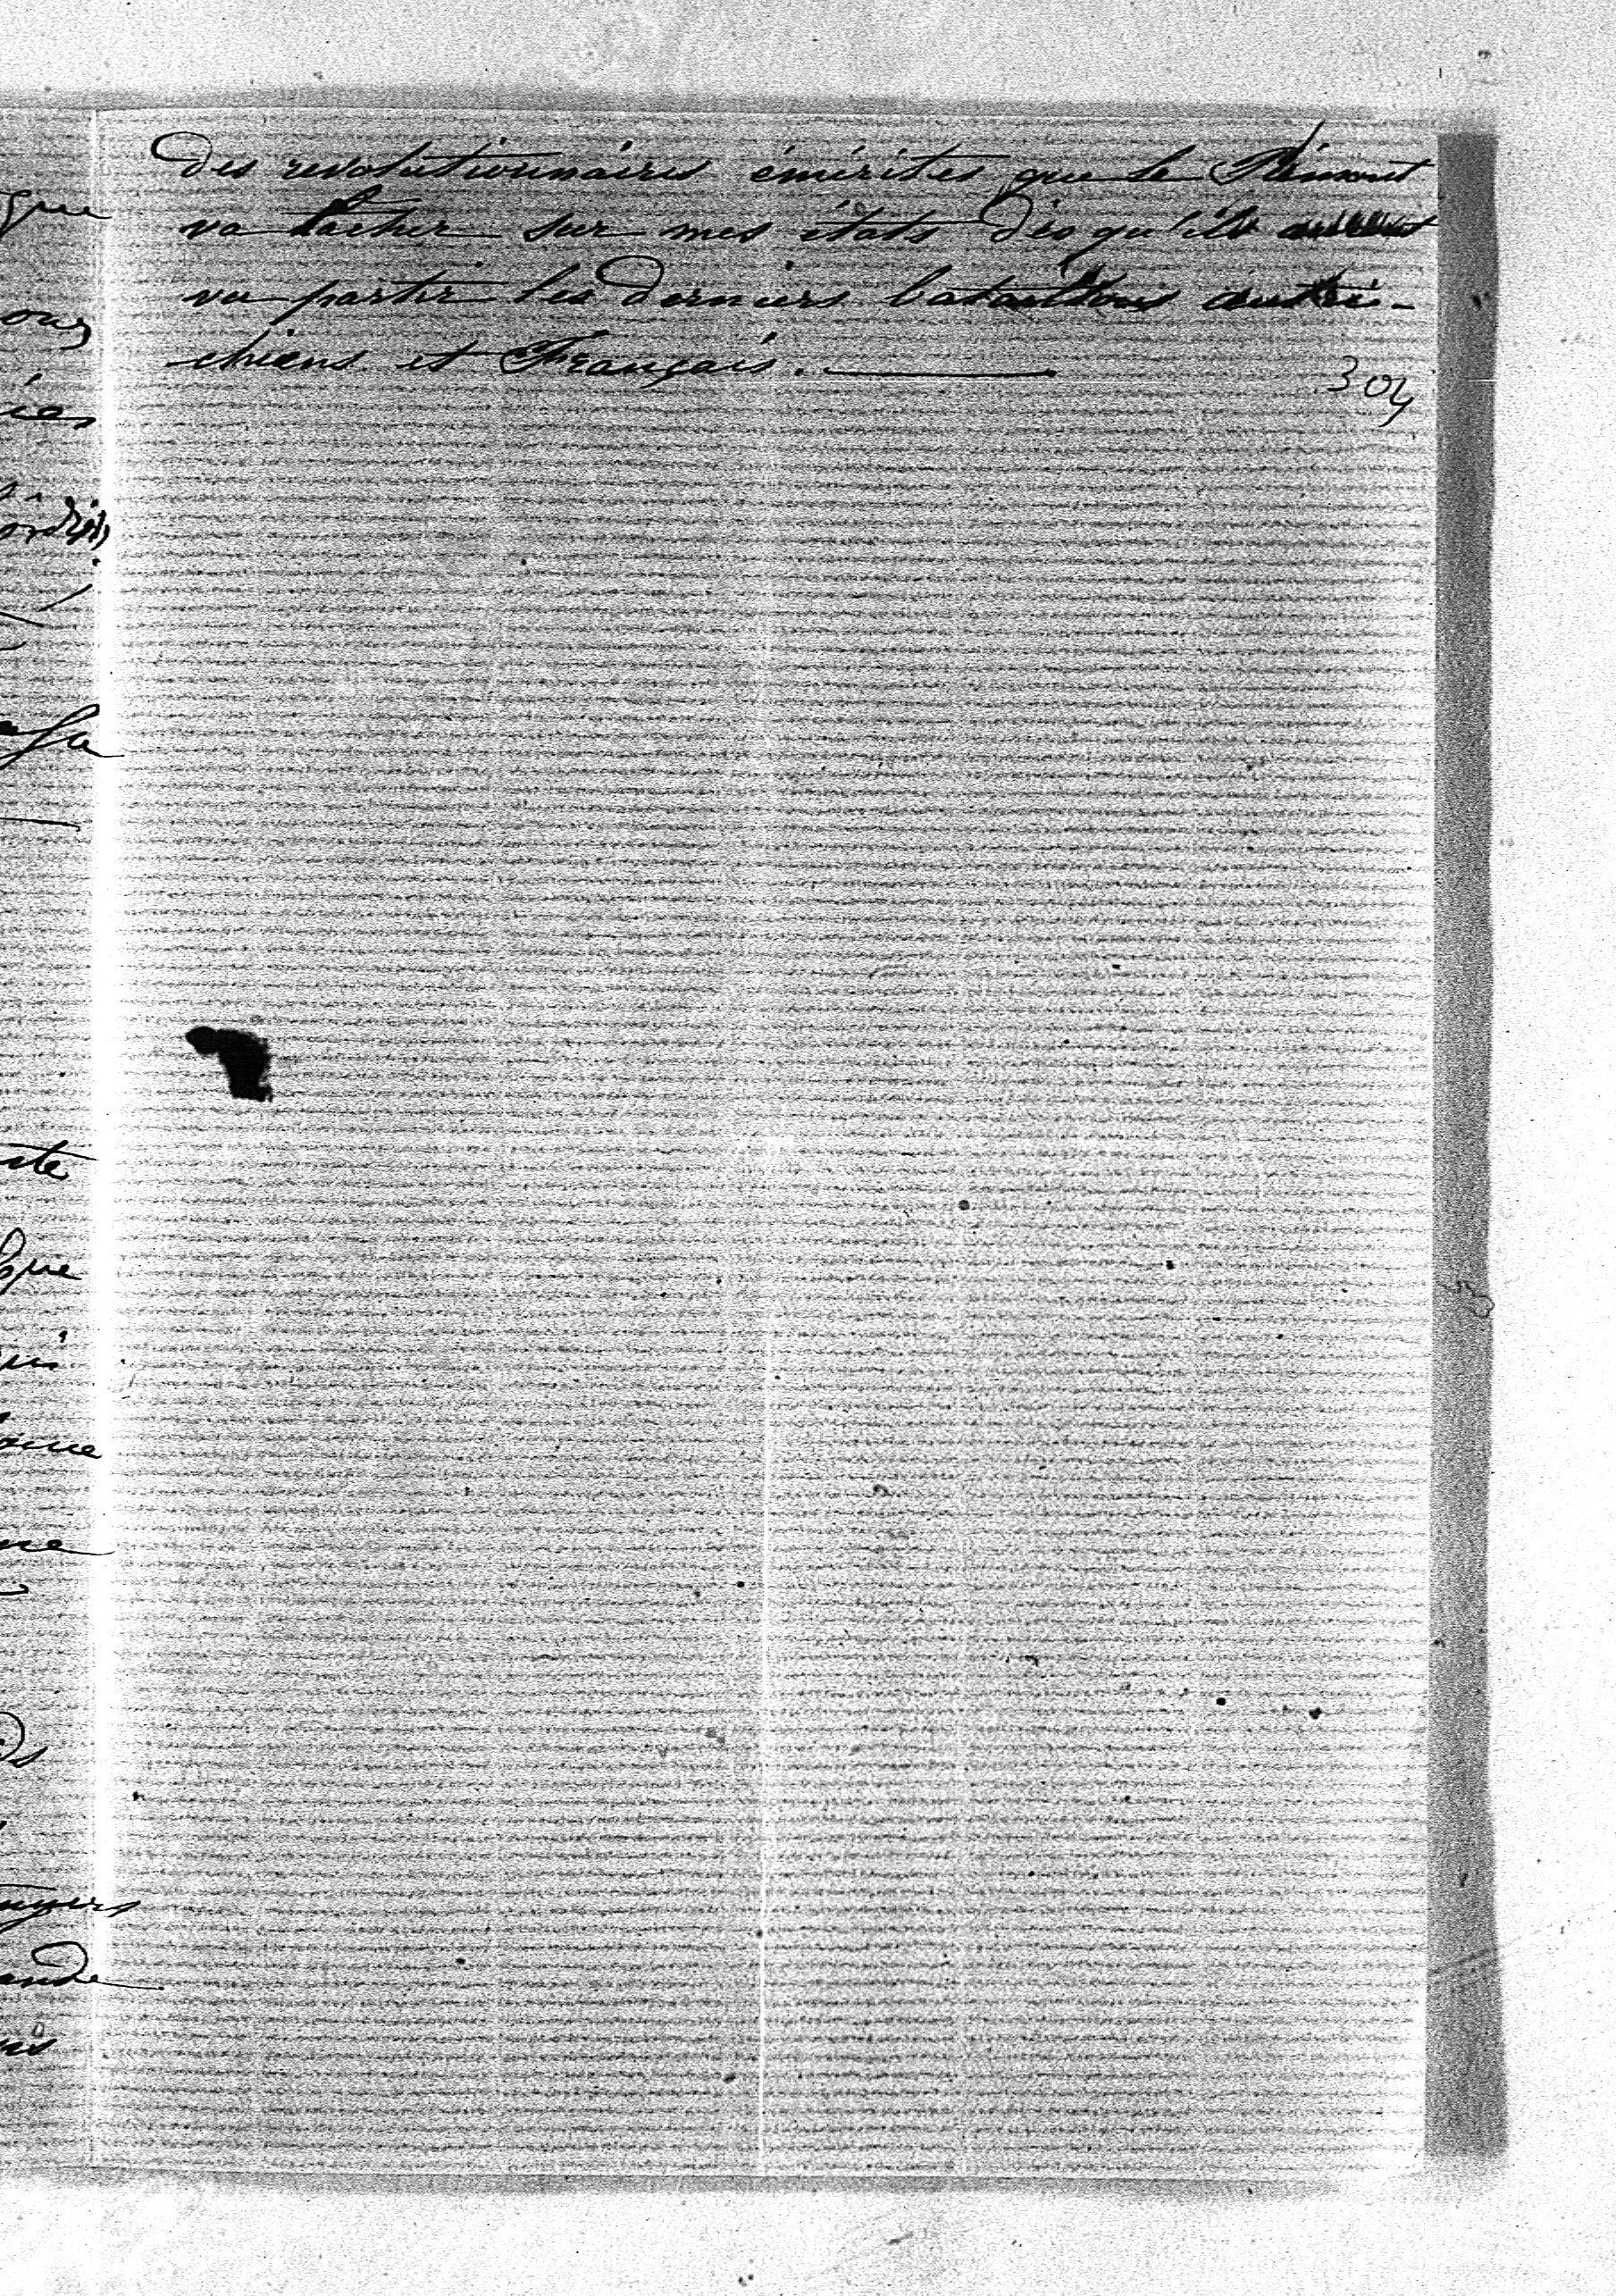 des revolutionnaires émérites que le Piémont
va lacher sur mes états dès qu'ils auront
vu partir les derniers bataillons autri-
chiens et Français.
304
que
ies
ste
que
ande